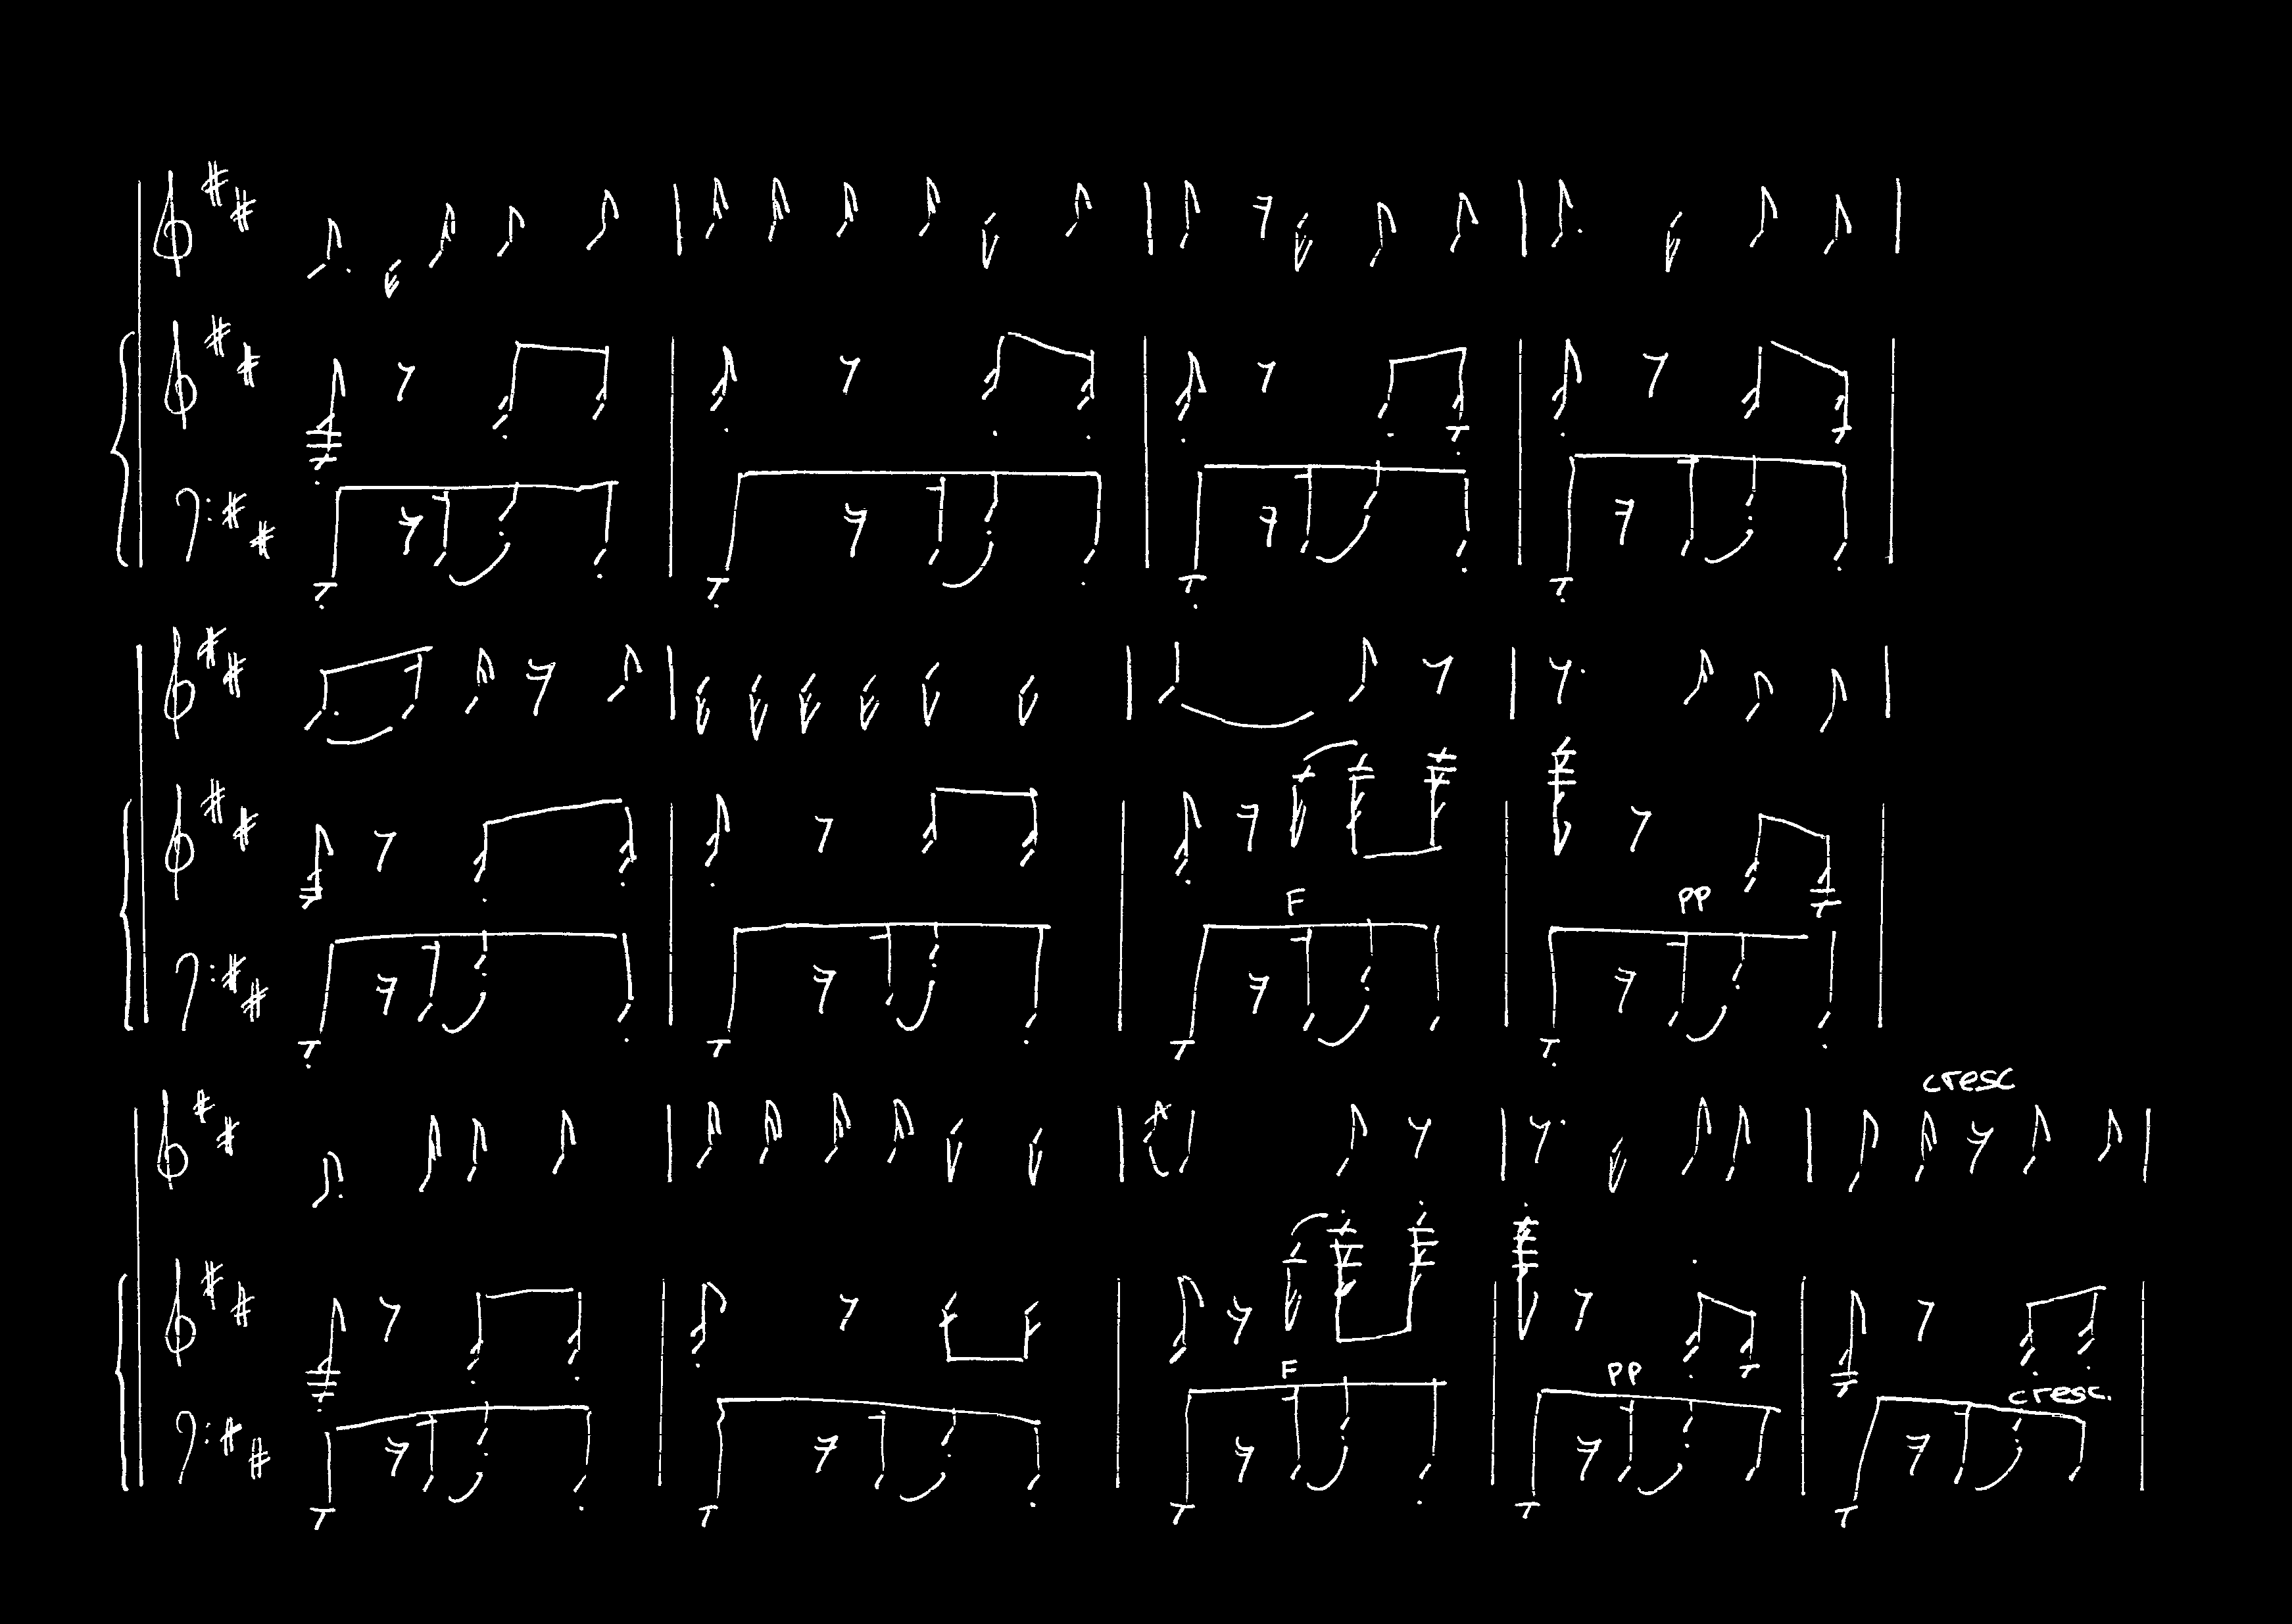 F PP
cresc
F PP cresc.